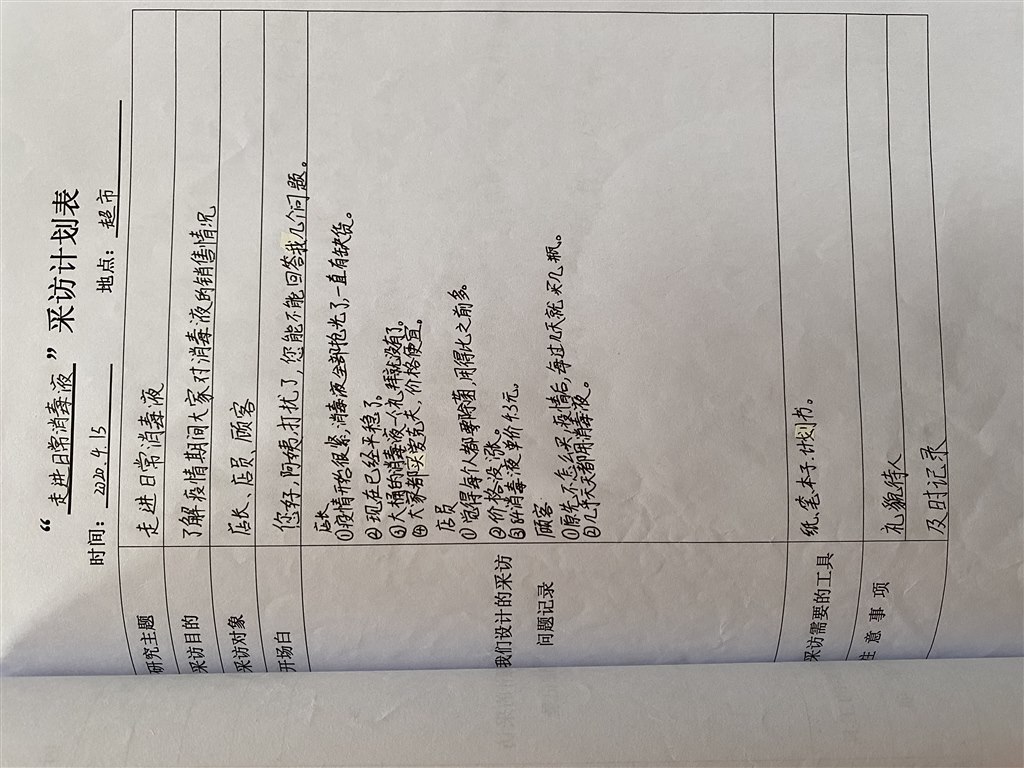 “走进日常消毒液”采访计划表
时间：2020.4.15 地点：超市
研究主题 走进日常消毒液
采访目的 了解疫情期间大家对消毒液的销售情况
采访对象 店长、店员、顾客
开场白 您好,阿姨打扰了,您能不能回答我几个问题。
我们设计的采访
问题记录
店长
①疫情开始很紧,消毒液全部抢光了,一直有缺货。
②现在已经平稳了。
③大桶的消毒液一个礼拜就没有了。
④大家都买宝龙大,价格便宜。
店员
①觉得每个人都要除菌,用得比之前多。
②价格没涨。
③84消毒液单价4.5元。
顾客
①原先不怎么买,疫情后,每过几天就买几瓶。
②几乎天天都用消毒液。
采访需要的工具 纸、笔、本子、计划书。
注意事项 礼貌待人
及时记录